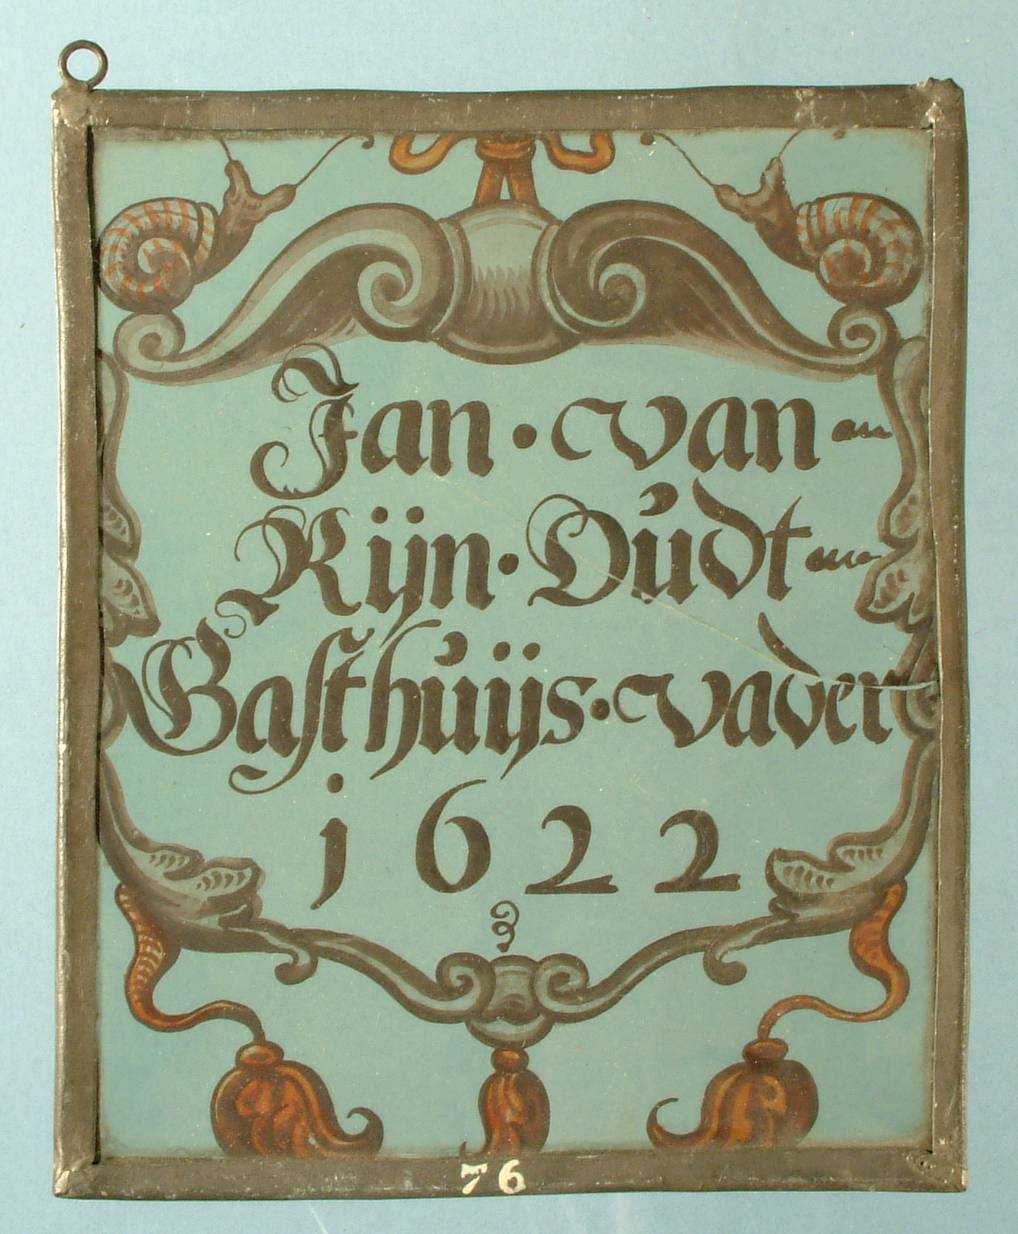 Jan · van
Rijn · Oudt
Gasthuijs · vader
1622
76